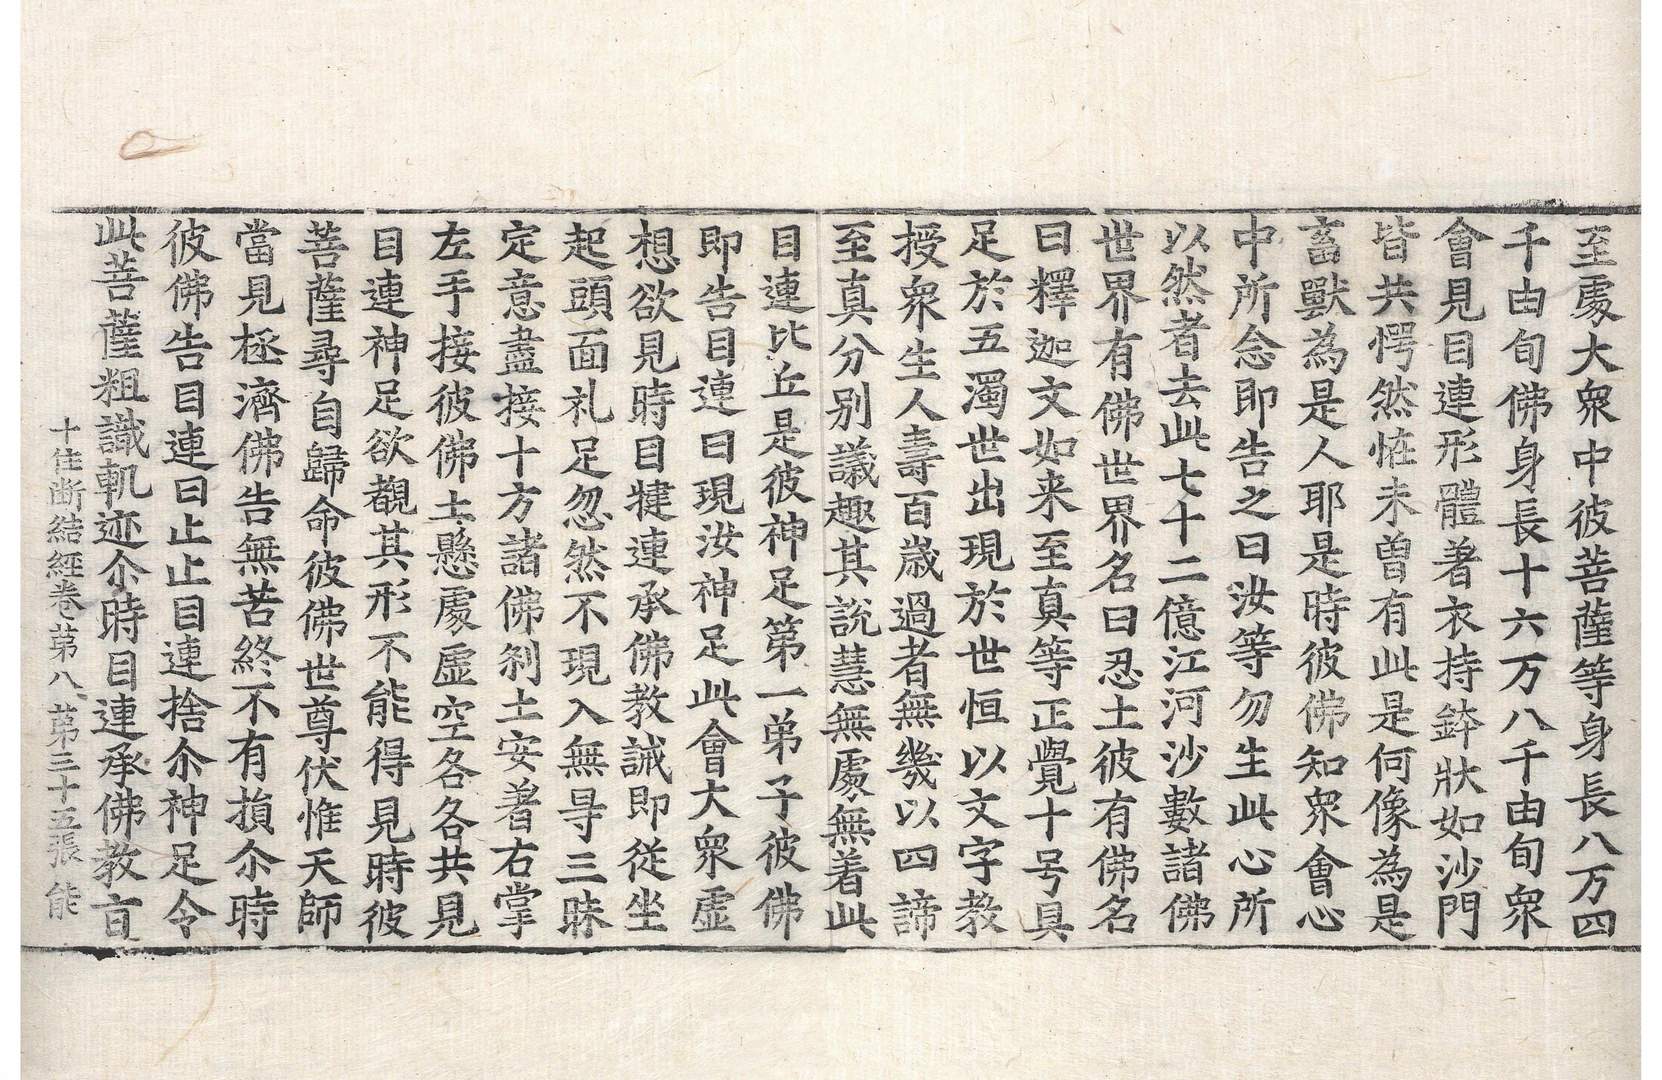 至處大衆中彼菩薩等身長八万四
千由旬佛身長十六万八千由旬衆
會見目連形體著衣持鉢狀如沙門
皆共愕然恠未曾有此是何像為是
畜獸為是人耶是時彼佛知衆會心
中所念即告之曰汝等勿生此心所
以然者去此七十二億江河沙數諸佛
世界有佛世界名曰忍土彼有佛名
曰釋迦文如来至真等正覺十号具
足於五濁世出現於世恒以文字教
授衆生人壽百歲過者無幾以四諦
至真分别議趣其說慧無處無着此
目連比丘是彼神足第一弟子彼佛
即告目連曰現汝神足此會大衆虛
想欲見時目揵連承佛教誡即從坐
起頭面礼足忽然不現入無㝵三昧
定意盡接十方諸佛刹土安著右掌
左手接彼佛土懸處虛空各各共見
目連神足欲覩其形不能得見時彼
菩薩尋自歸命彼佛世尊伏惟天師
當見拯濟佛告無苦終不有損尒時
彼佛告目連曰止止目連捨尒神足令
此菩薩粗識軌迹尒時目連承佛教㫖
十住断結經卷第八 第三十五張 能